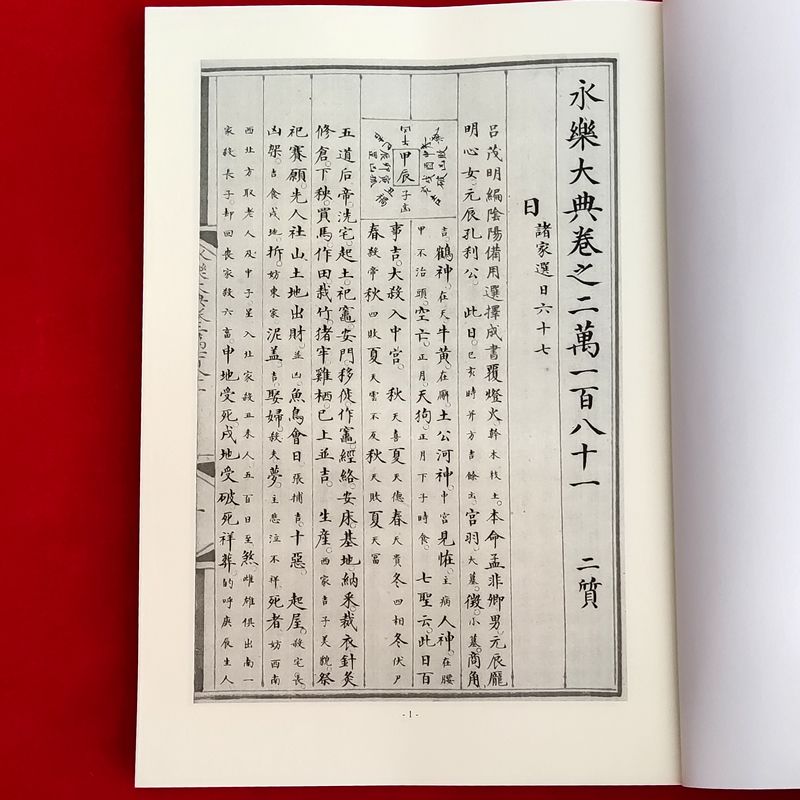 永樂大典卷之二萬一百八十一 二質
日 諸家選日六十七
呂茂明編陰陽備用選擇成書覆燈火幹木枝土本命孟非卿男元辰龐
明心女元辰孔利公 此日巳亥時并方吉餘凶宮羽大墓徵小墓商角
甲辰
吉鶴神在天牛黃在廨土公河神中宮見恠主病人神在腰
甲不治頭空亡正月天狗正月下子時食 七聖云此日百
事吉大殺入中宮 秋天喜夏天德春天貴冬四相冬伏尸
春殺常秋四敗夏天雪不反秋天敗夏天富
五道后帝洗宅起土祀竈安門移徙作竈經絡安床基地納釆裁衣針灸
修倉下秧買馬作田栽竹猪牢雞栖巳上並吉 生產西家吉子美貌祭
祀賽願先人社山土地出財並凶魚鳥會日張捕吉十惡 起屋殺宅長
凶架吉食戌地拆妨東家泥蓋吉娶婦殺夫夢主悲泣不祥死者妨西南
西北方取老人及甲子星入北家殺丑未人五百日至煞雌雄俱出南一
家殺長子却回喪家殺六畜申地受死戌地受破死祥葬的呼庚辰生人
- 1 -